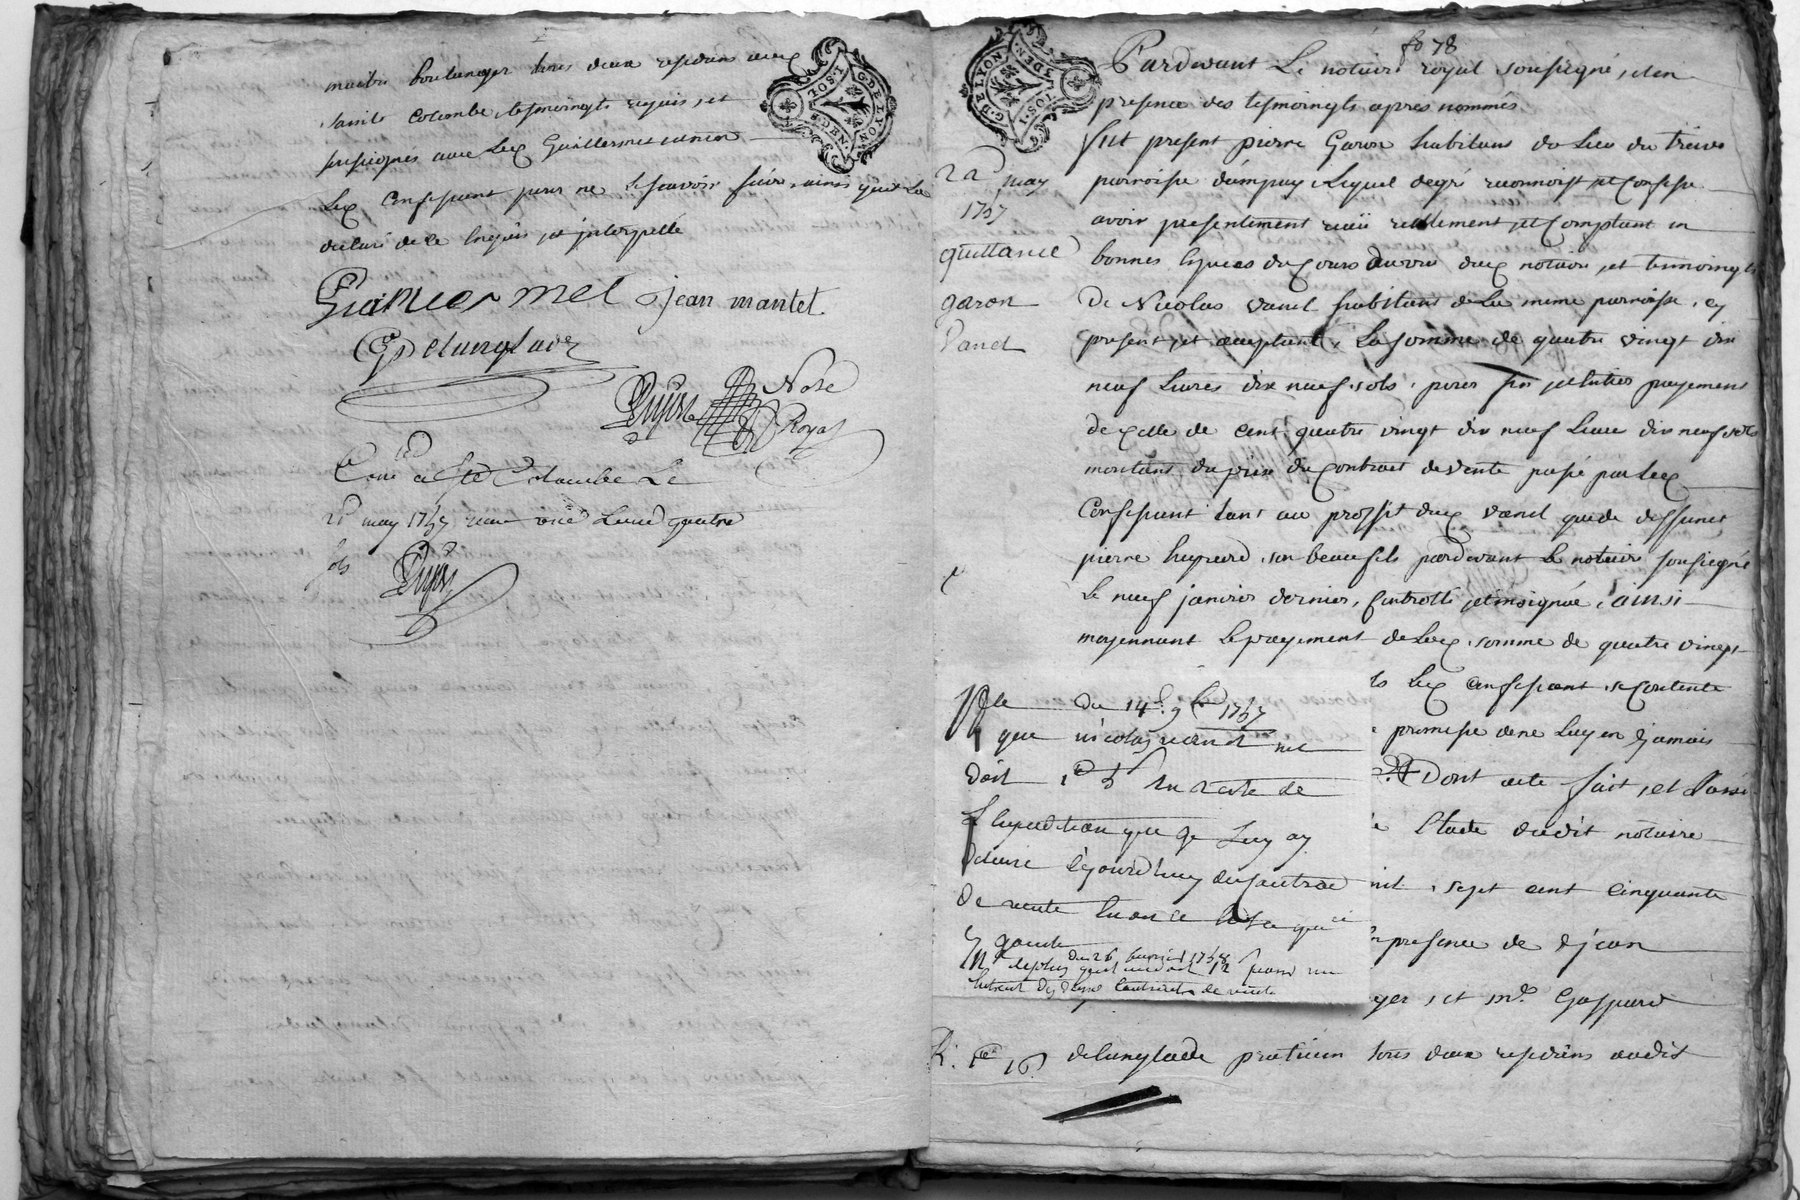 maitre boulanger tous deux residans aud
sainte Colombe, tesmoingts requis, et
soussignés avec led Guillermet
led Confessant pour ne le scavoir faire, ainsi que la
declaré de ce enquis et interpellé
G. DE LYON
I. SOL
DEN.
François mel Jean mantet
Gp Delanglade
Dupon Nore
Royal
Cone a Ste Colombe Le
21 may 1757 Livre quatre
sols
Dupon
fo 78
G. DE LYON
I. SOL
DEN.
Pardevant Le notaire royal soussigné, et en
presence des tesmoingts apres nommés
fut present pierre Garon habitant du Lieu du treive
parroisse dampuy Lequel degré reconnoist et Confesse
avoir presentement receü reellement et Comptant en
bonnes Especes du Cours au veu dud notaire, et temoingts
de Nicolas vanel habitant de La meme parroisse, cy
present et acceptant, La somme de quatre vingt dix
neuf Livres dix neuf sols, pour fin et entier payement
de Celle de cent quatre vingt dix neuf Livre dix neuf sols
montant du prix du Contract de vente passé par led
Confessant tant au proffit dud vanel que de deffunct
pierre son beau fils pardevant Le notaire soussigné
Le neuf janvier dernier, Controllé et insignué, ainsi
moyennant Le payement de Lad. somme de quatre vingt
2 may
1757
quittance
garon
Vanel
Led Confessant se Contente
promesse de ne Luy en jamais
Dont acte fait, et passé
Etude dudit notaire
mil, sept cent cinquante
en presence de jean
et me. Gaspard
delanglade praticien tous deux residans audit
du 14e. 9bre 1757
que nicolas vanel me
doit du reste de
L'expedition que je Luy ay
delivré aujourd'huy du Contrat
de vente
du 26 1758
de vente